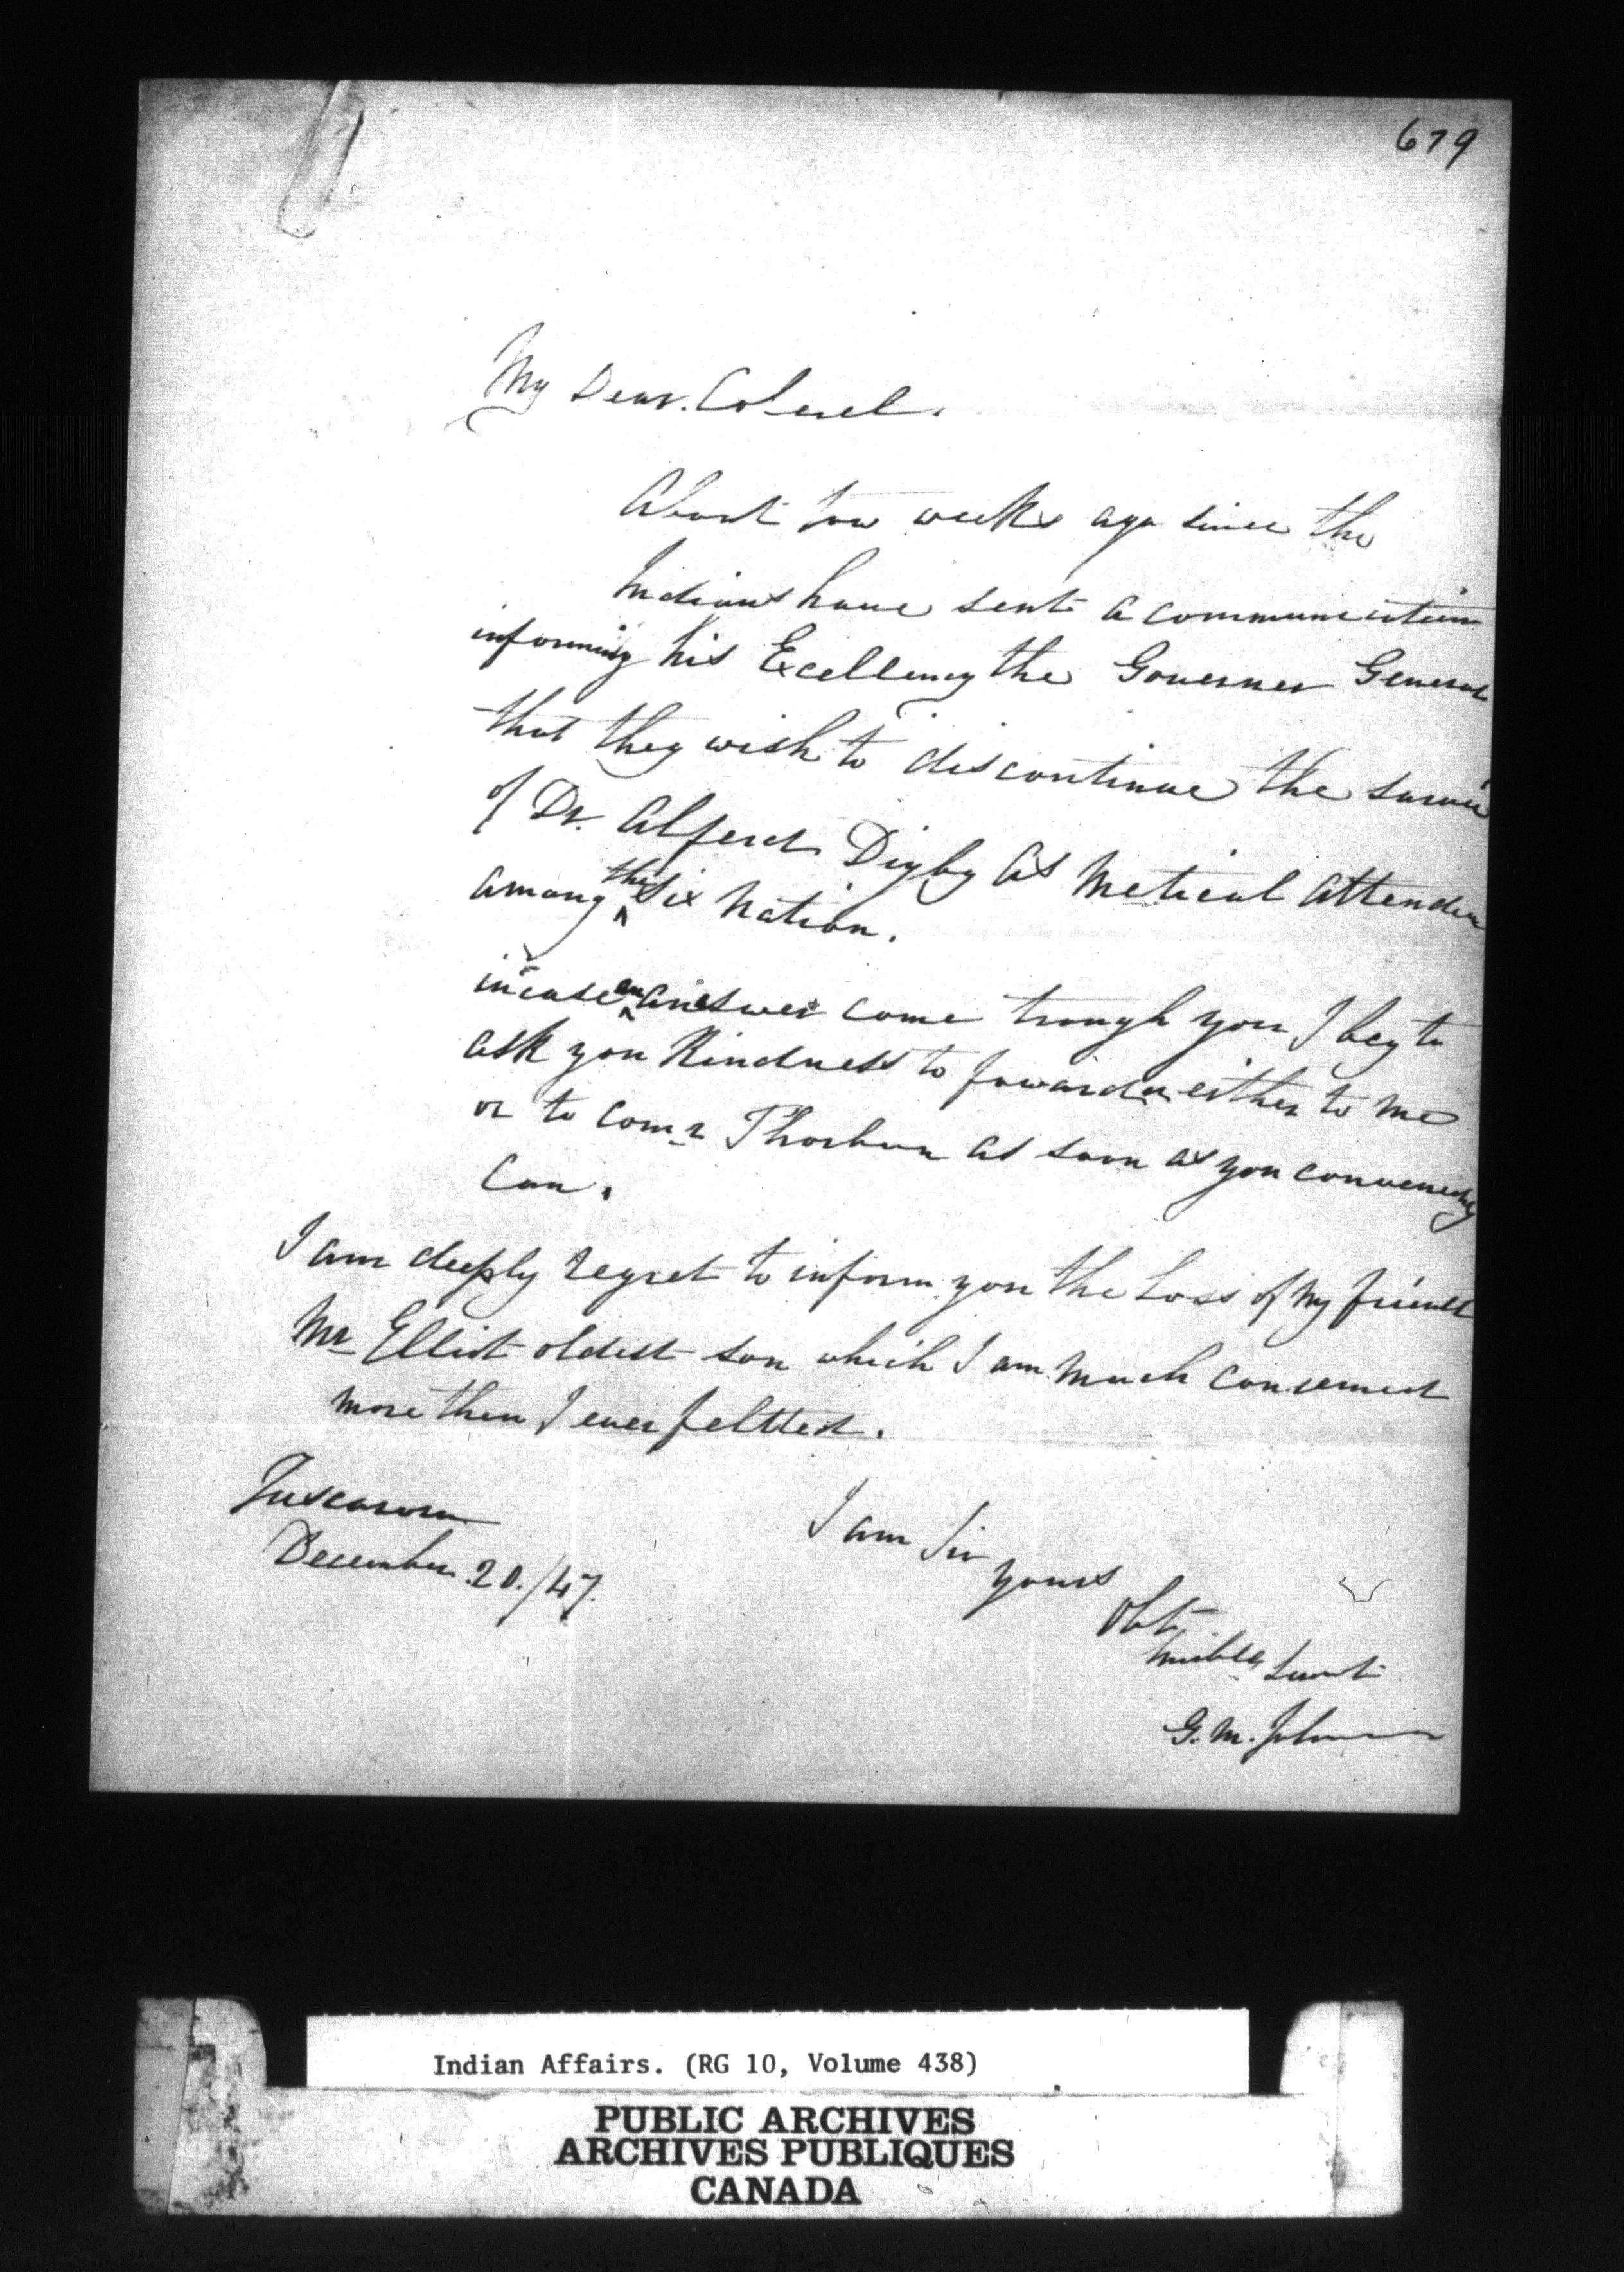 679
My Dear. Colenel.
About tow weeks ago since the
Indians have sent a communication
informing his Excellency the Governer General
that they wish to discontinue the survice
of Dr. Alferd Digby as Metical Attendan
among the Six Nation.
incase an answer come trough you I beg to
ask you Kindness to foward either to me
or to Comr Thorburn as soon as you conveniently
Can.
I am deeply regret to inform you the Loss of my friend
Mr Elliot oldest son which I am much concerned
more then I ever feltted.
Tuscarora
December 20./47.
I am Sir
yours
Obt
humble Servt
G. M. Johnson
Indian Affairs. (RG 10, Volume 438)
PUBLIC ARCHIVES
ARCHIVES PUBLIQUES
CANADA